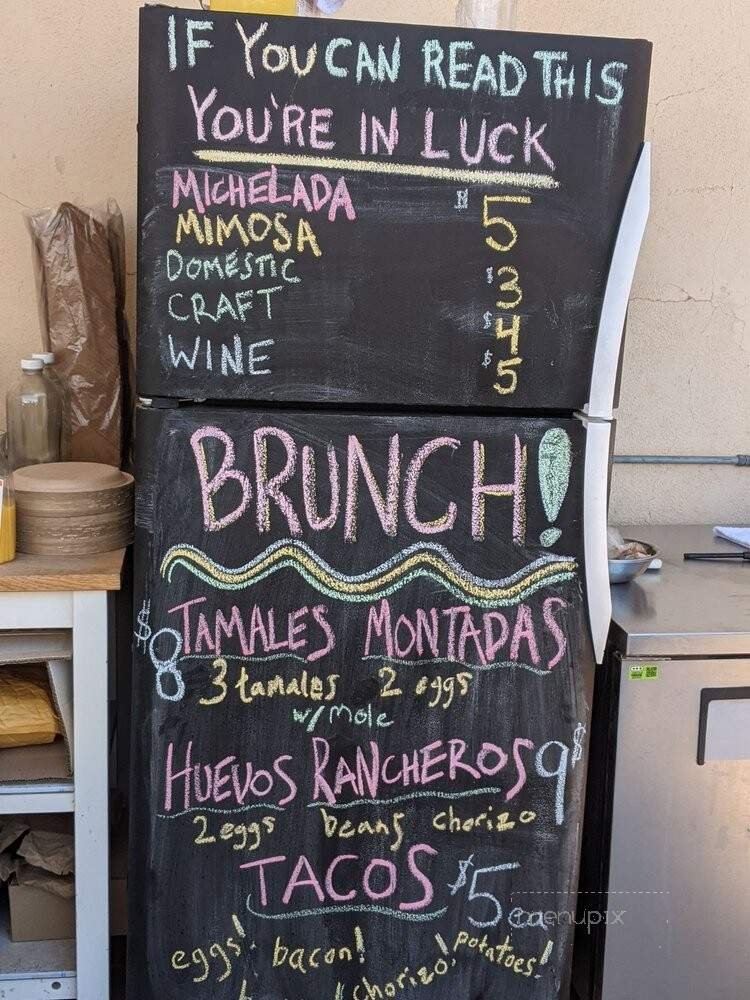 IF YOU CAN READ THIS
YOU'RE IN LUCK
MICHELADA $5
MIMOSA
DOMESTIC $3
CRAFT $4
WINE $5
BRUNCH!
$8 TAMALES MONTADAS
3 tamales 2 eggs
w/ mole
HUEVOS RANCHEROS 9$
2 eggs beans chorizo
TACOS $5 ea
eggs! bacon! potatoes!
chorizo!
menupix